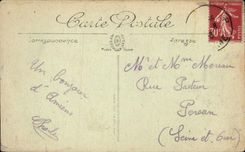 Carte Postale
Correspondance
Adresse
Un bonjour
d'Amiens
Mr et Mme Moreau
Rue Pasteur
Persan
(Seine et Oise)